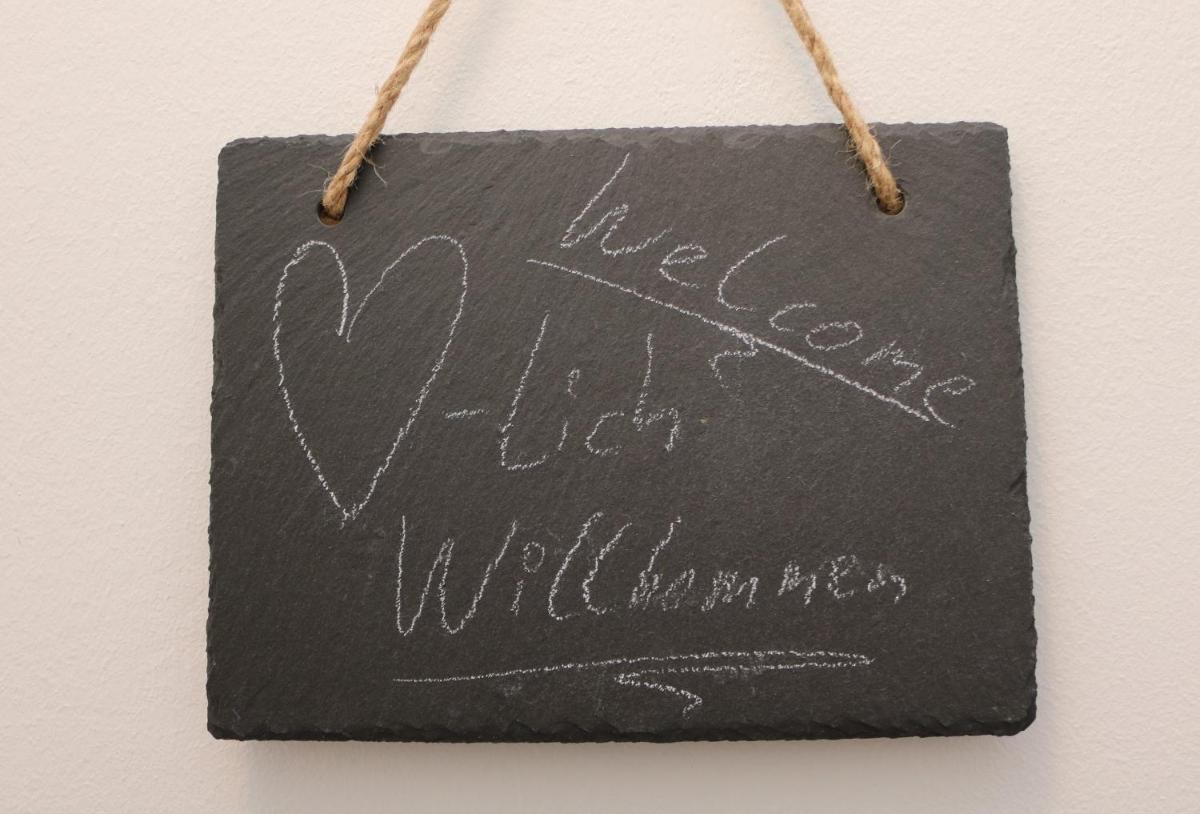 Welcome
-lich
Willkommen